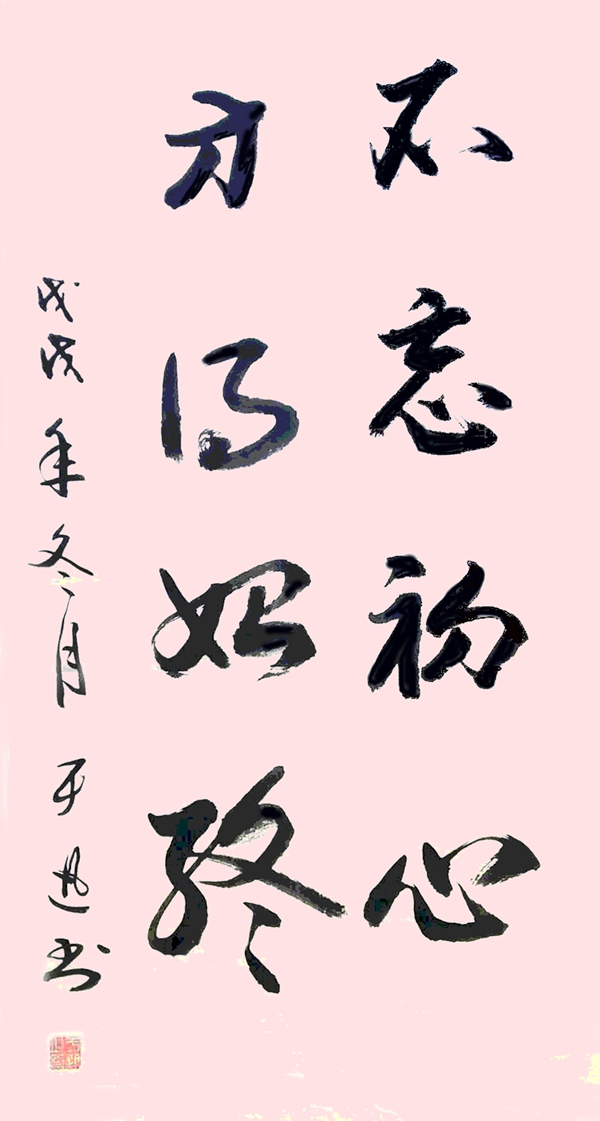 不忘初心
方得始终
戊戌年冬月于迅书